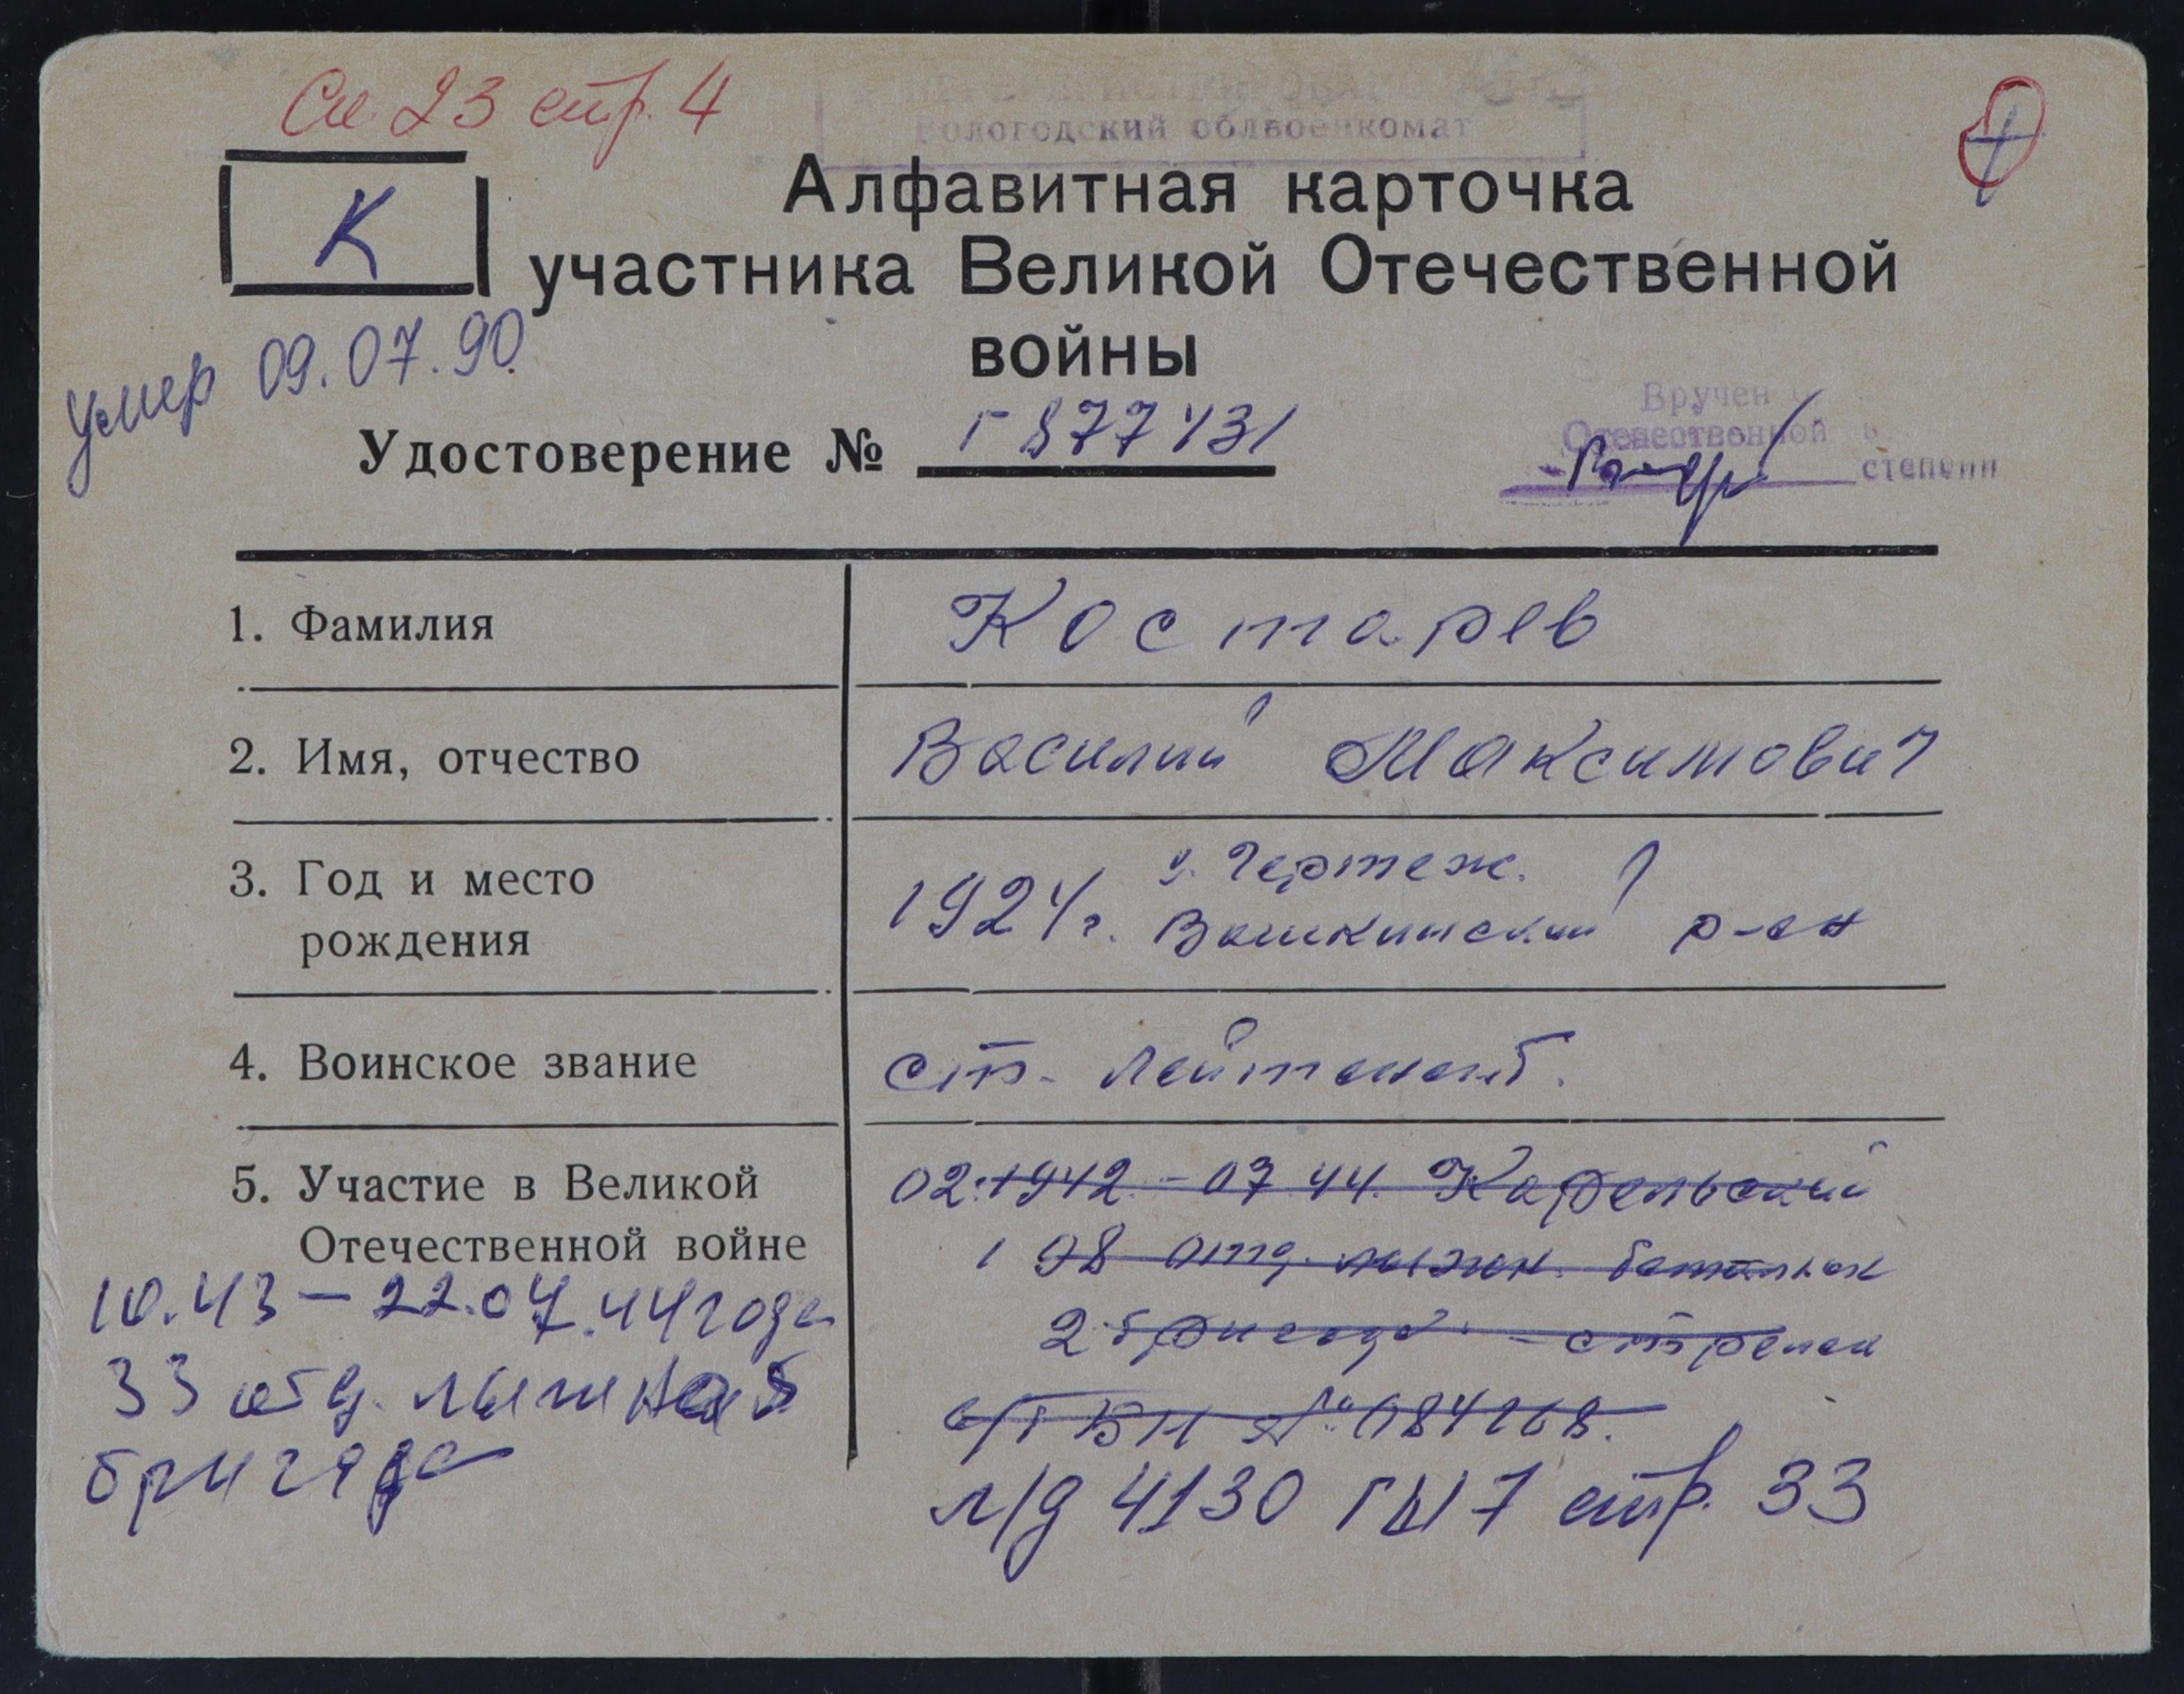 Сп. 23 стр. 4
Вологодский облвоенкомат
К
Алфавитная карточка
участника Великой Отечественной
войны
умер 09.07.90
Удостоверение № Г 877431
Вручен
Отечественной в
степени
1. Фамилия
Костарев
2. Имя, отчество
Василий Максимович
3. Год и место
рождения
д. Чертеж.
1924г. Вашкинский р-он
4. Воинское звание
ст. лейтенант.
5. Участие в Великой
Отечественной войне
02.1942 - 07 44. Карельский
198 отд. лыжн. батальон
2 бригада - стрелок
10.43 – 22.07.44 года
33 отд. лыжная
бригада
л/д 4130 стр. 33